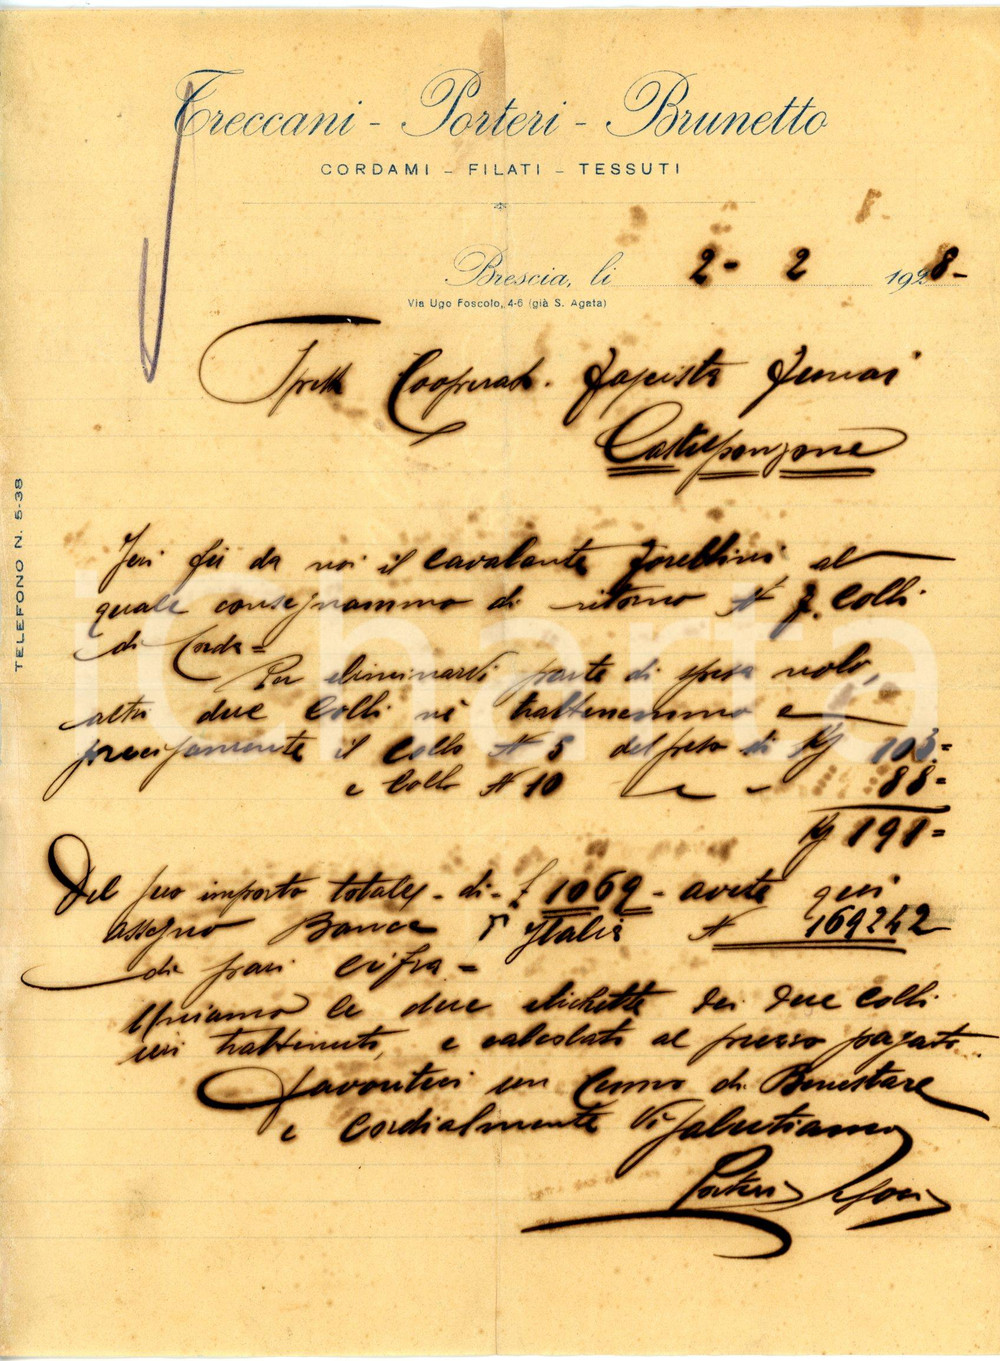 Treccani - Porteri - Brunetto
CORDAMI - FILATI - TESSUTI
Brescia, li 2 - 2 1928-
Via Ugo Foscolo, 4-6 (già S. Agata)
TELEFONO N. 5-38
Spett Cooperat. Fascista
Castelponzone
Jeri fù da noi il cavalante al
quale consegnammo di ritorno N 7. Colli
di Corda =
Per eliminarvi parte di spesa nolo,
altri due Colli ne trattenemmo e
precisamente il Collo N 5 del peso di Kg 103=
e Collo N 10 88=
Kg 191=
Del suo importo totale - di - £ 1069 - avete qui
assegno Banca d' Italia N 169242
di pari cifra =
Uniamo le due etichette dei due colli
trattenuti, e calcolati al prezzo pagato.
Favoriteci un Cenno di Benestare
e cordialmente Vi salutiamo
Porteri
iCharta